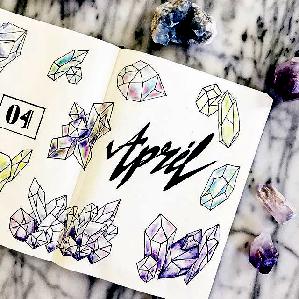 04
April